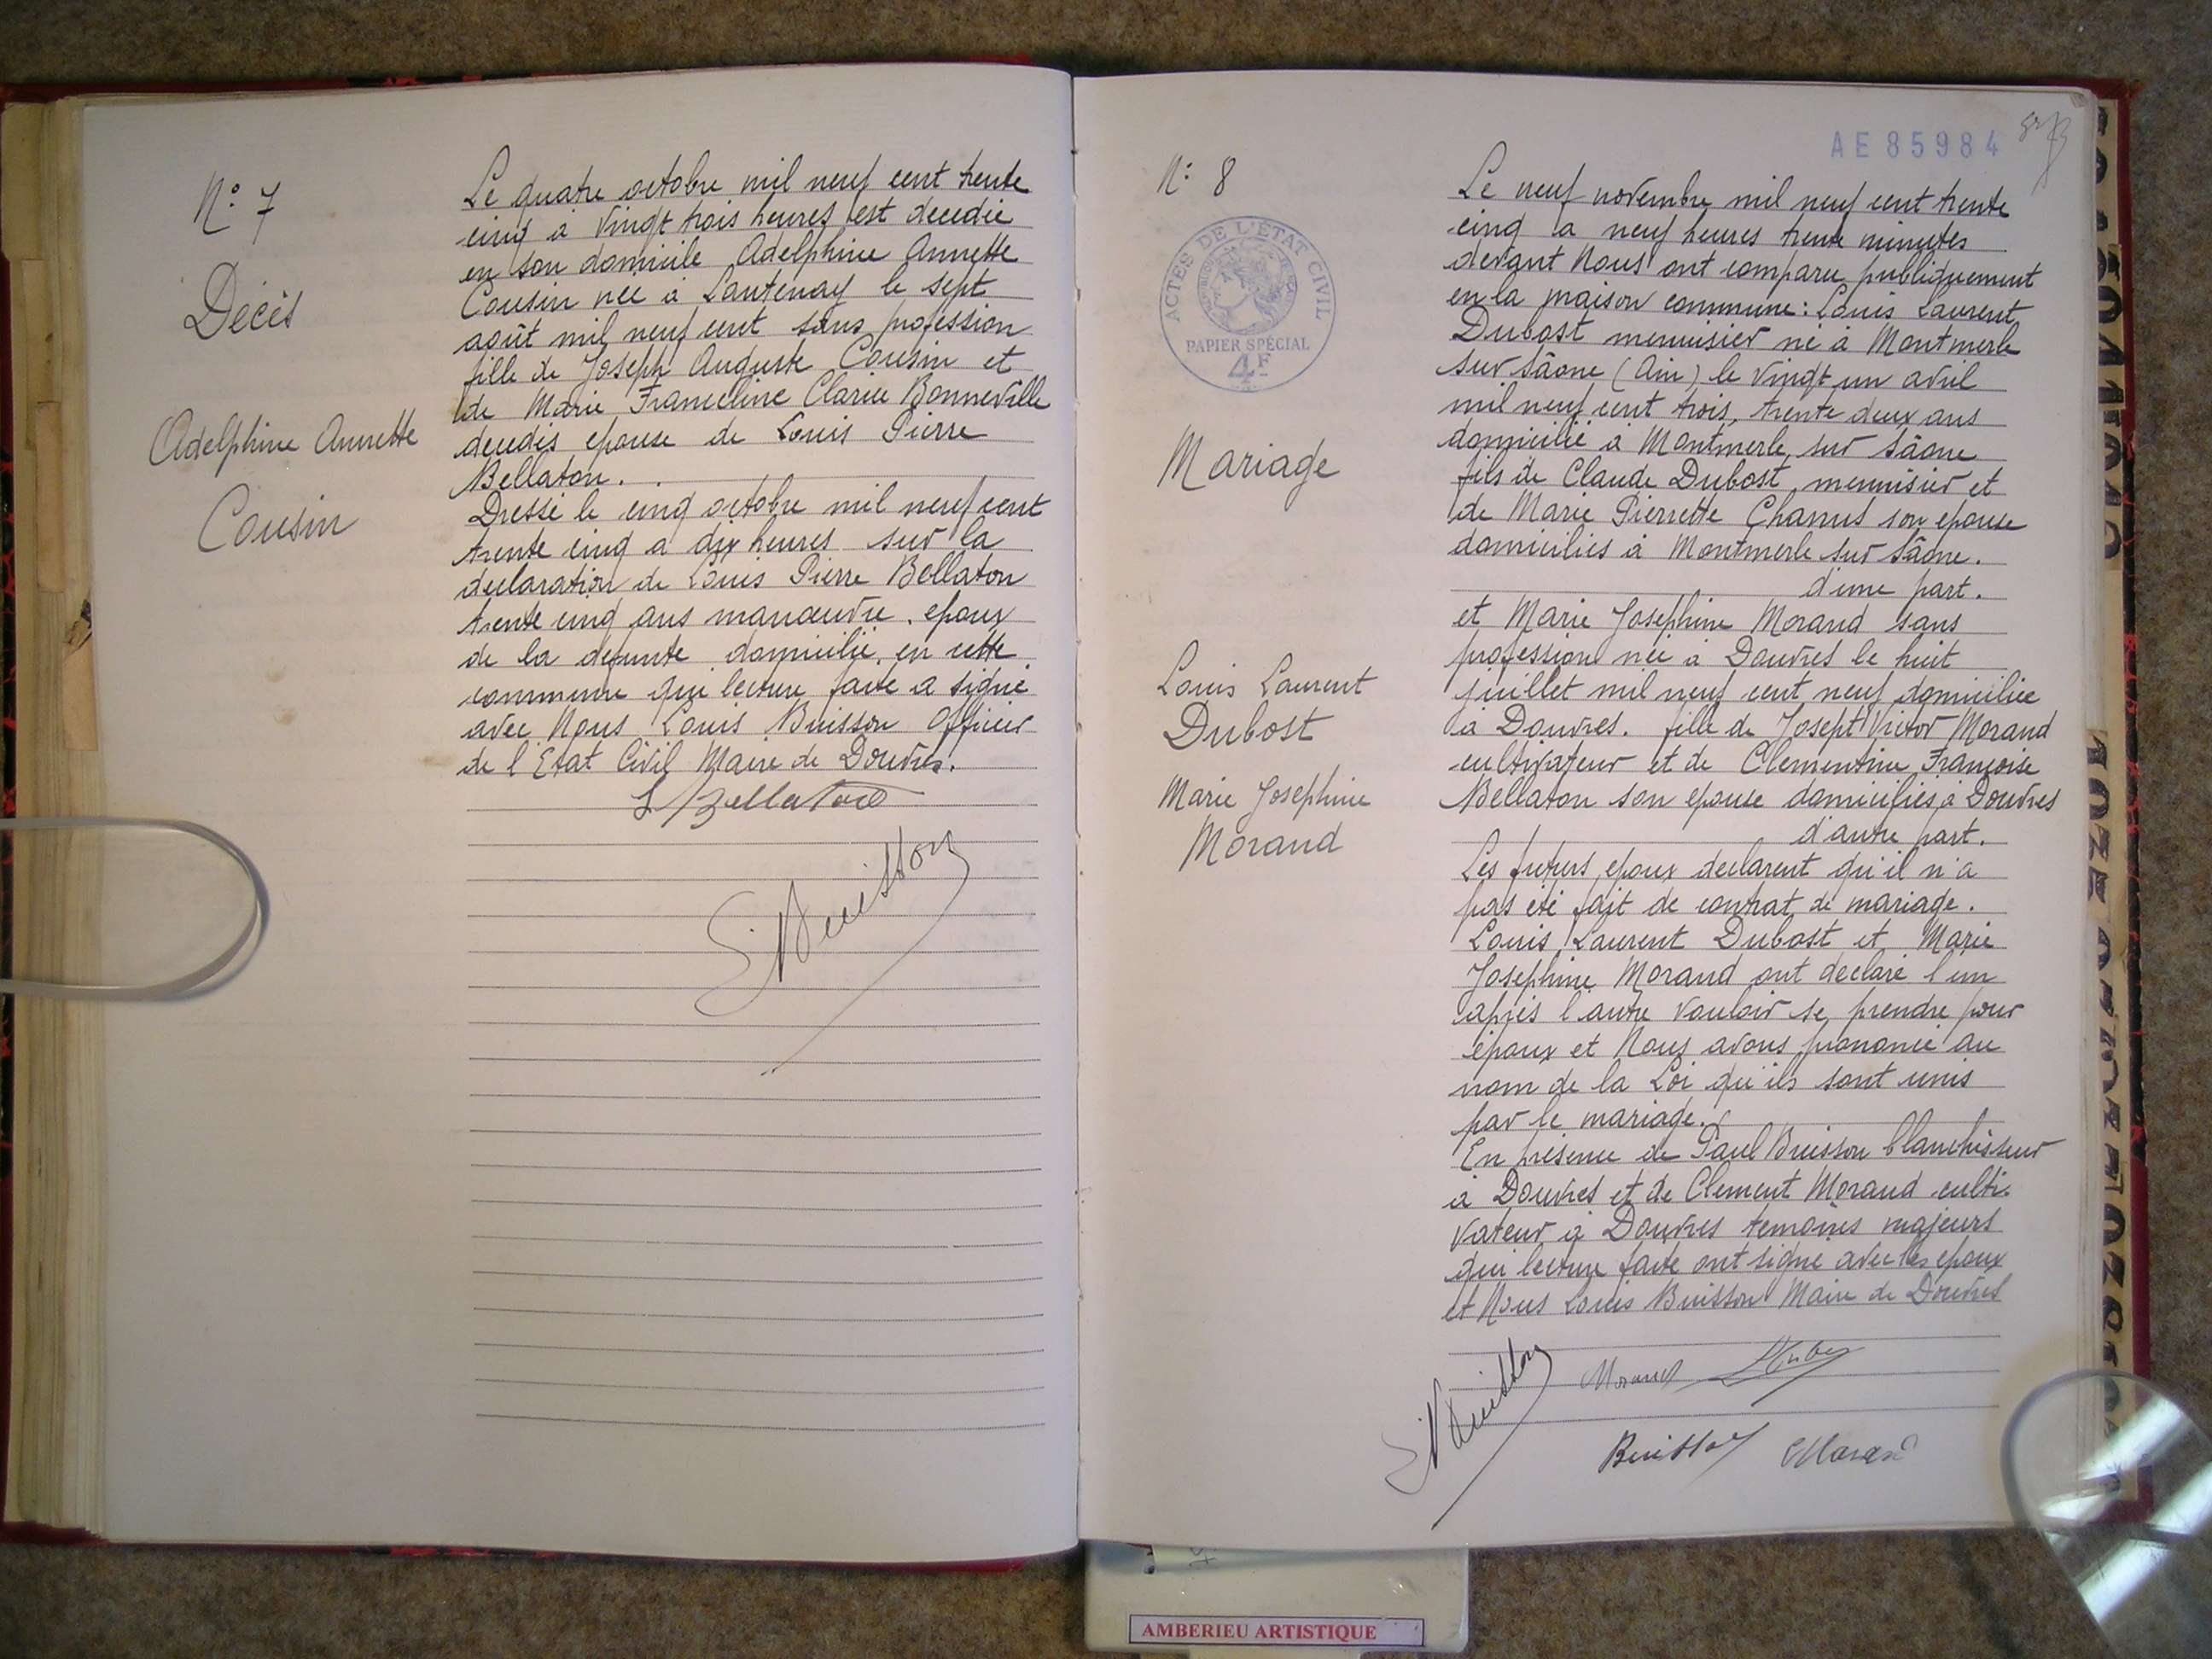 N° 7
Décès
Adelphine Annette
Cousin
Le quatre octobre mil neuf cent trente
cinq à vingt trois heures est decedée
en son domicile Adelphine Annette
Cousin née à Lantenay le sept
août mil neuf cent sans profession
fille de Joseph Auguste Cousin et
de Marie Franceline Clarice Bonneville
decedés epouse de Louis Pierre
Bellaton.
Dressé le cinq octobre mil neuf cent
trente cinq a dix heures sur la
declaration de Louis Pierre Bellaton
trente cinq ans manœuvre, epoux
de la defunte domicilié en cette
commune qui lecture faite a signé
avec Nous Louis Buisson Officier
de l'Etat Civil Maire de Douvres.
L Bellaton
L. Buisson
AE 85984
N° 8
ACTES DE L'ÉTAT CIVIL
PAPIER SPÉCIAL
4F
Mariage
Louis Laurent
Dubost
Marie Josephine
Morand
Le neuf novembre mil neuf cent trente
cinq a neuf heures trente minutes
devant Nous ont comparu publiquement
en la maison commune: Louis Laurent
Dubost menuisier né à Montmerle
sur Sâone (Ain) le vingt un avril
mil neuf cent trois, trente deux ans
domicilié à Montmerle sur Sâone
fils de Claude Dubost menuisier et
de Marie Pierrette son epouse
domiciliés à Montmerle sur Sâone.
d'une part.
et Marie Josephine Morand sans
profession née à Douvres le huit
juillet mil neuf cent neuf domiciliée
à Douvres. fille de Joseph Victor Morand
cultivateur et de Clementine Françoise
Bellaton son epouse domiciliés à Douvres
d'autre part.
Les futurs epoux declarent qu'il n'a
pas été fait de contrat de mariage.
Louis Laurent Dubost et Marie
Josephine Morand ont declaré l'un
après l'autre vouloir se prendre pour
époux et Nous avons prononcé au
nom de la Loi qu'ils sont unis
par le mariage.
En présence de Paul Buisson blanchisseur
à Douvres et de Clement Morand culti-
vateur à Douvres temoins majeurs
qui lecture faite ont signé avec les epoux
et Nous Louis Buisson Maire de Douvres
L. Buisson
Morand
Buisson
Morand
AMBERIEU ARTISTIQUE